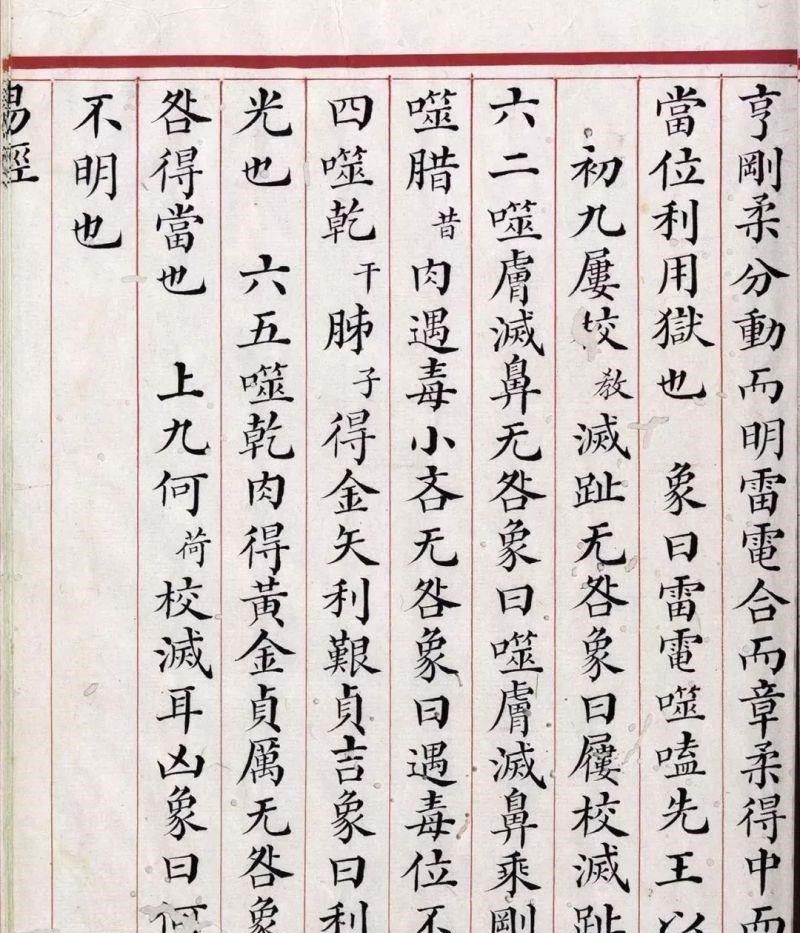 亨剛柔分動而明雷電合而章柔得中而
當位利用獄也 象曰雷電噬嗑先王以
初九屢校教滅趾无咎象曰屨校滅趾
六二噬膚滅鼻无咎象曰噬膚滅鼻乘剛
噬腊昔肉遇毒小吝无咎象曰遇毒位不
四噬乾干胏子得金矢利艱貞吉象曰利
光也 六五噬乾肉得黃金貞厲无咎象
咎得當也 上九何荷校滅耳凶象曰何
不明也
易經